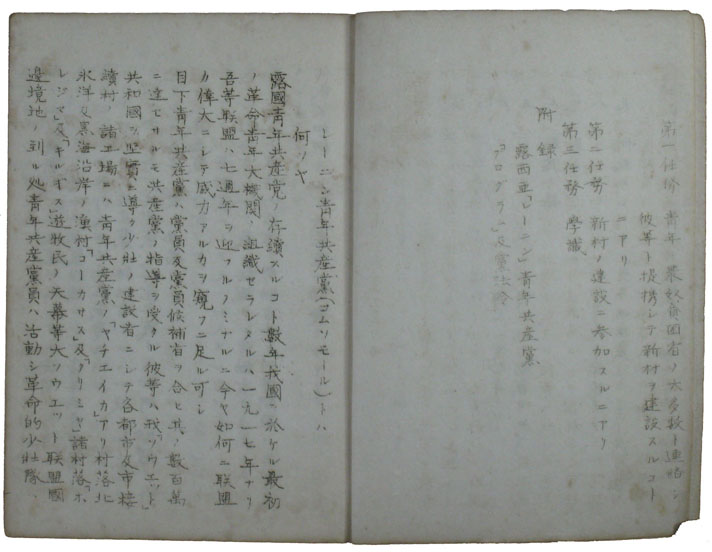 第一任務 青年 最貧農困者ノ大多数ト連結シ
彼等ト提携シテ新村ヲ建設スルコト
ニアリ
第二任務 新村ノ建設ニ参加スルニアリ
第三任務 學識
附録
露西亜「レーニン」青年共産黨
「プログラム」及黨法令
レーニン青年共産黨(コムソモール)トハ
何ソヤ
露國青年共産党ノ存續スルコト数年我國ニ於ケル最初
ノ革命青年大機関ノ組織セラレタルハ一九一七年ナリ
吾等联盟ハ七週年ヲ迎フルノミナルニ今ヤ如何ニ联盟
カ偉大ニシテ威力アルカヲ窺フニ足ル可シ
目下青年共産黨ハ黨員及黨員候補者ヲ合セ其ノ数百萬
ニ達セサルモ共産黨ノ指導ヲ受クル彼等ハ我「ソウエット」
共和國ヲ堅實ニ導ク少壮ノ建設者ニシテ各都市及市接
續村ノ諸工場ニハ青年共産黨ノ「ヤチエイカ」アリ村落北
氷洋及黒海沿岸ノ漁村「コーカサス」及「クリミヤ」諸村落「ホ
レジス」及「キルギス」遊牧民ノ天幕等大ソウエット联盟國
邊境地ノ到ル処青年共産黨員ハ活動シ革命的少壮隊ハ